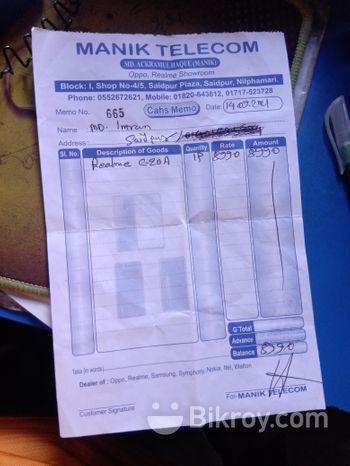 MANIK TELECOM
MD. ACKRAMUL HAQUE (MANIK)
Oppo, Realme Showroom
Block: I, Shop No-4/5, Saidpur Plaza, Saidpur, Nilphamari.
Phone: 0552672621, Mobile: 01820-543812, 01717-523728
Memo No. 665 Cahs Memo Date
Name MD. Imran
Address: Saidpur
Sl. No. Description of Goods Qunrtity Rate Amount
Realme C-20A 1P 8990 8990
G Total
Advance
Balance 8990
Taka (in words)
Dealer of : Oppo, Realme, Samsung, Symphony, Nokia, Itel, Walton
Customer Signature
For- MANIK TELECOM
Bikroy.com